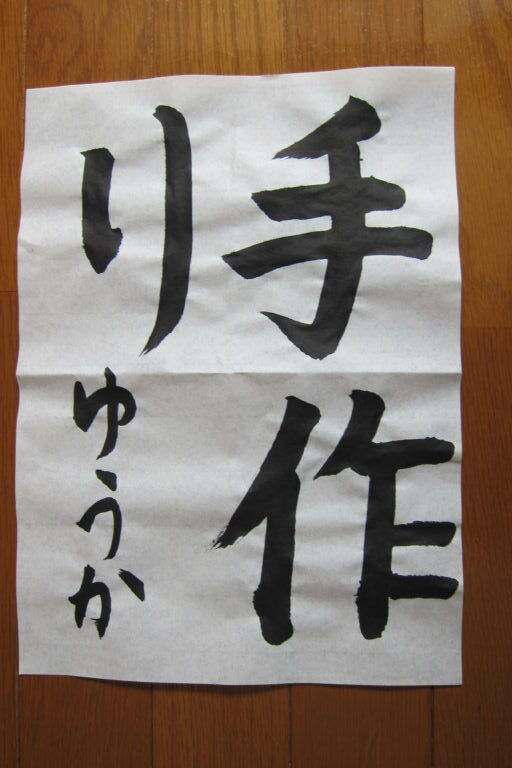 手作
り
ゆうか